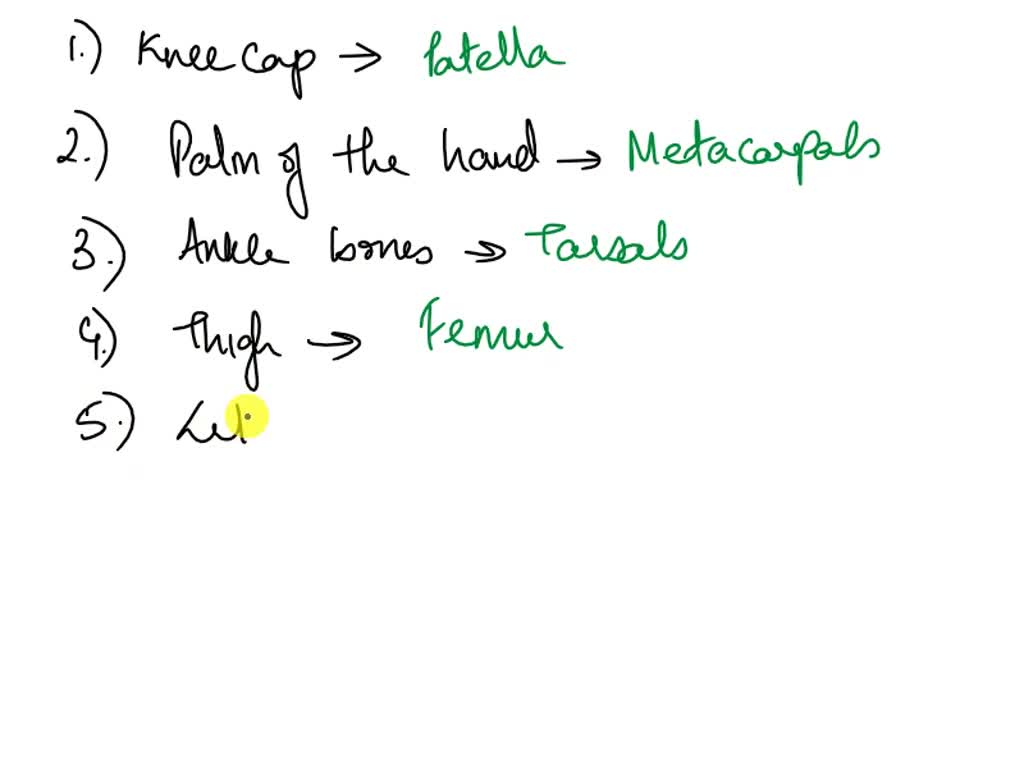 1.) Kneecap → Patella
2.) Palm of the hand → Metacarpals
3.) Ankle bones → Tarsals
4.) Thigh → Femur
5.)